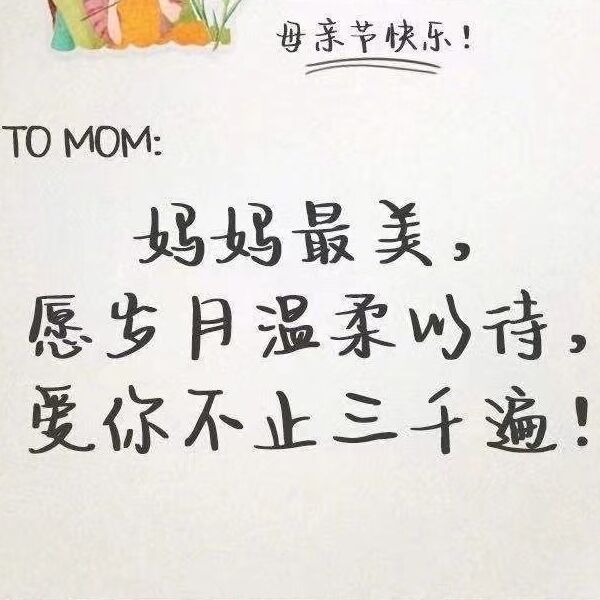 母亲节快乐！
TO MOM:
妈妈最美，
愿岁月温柔以待，
爱你不止三千遍！